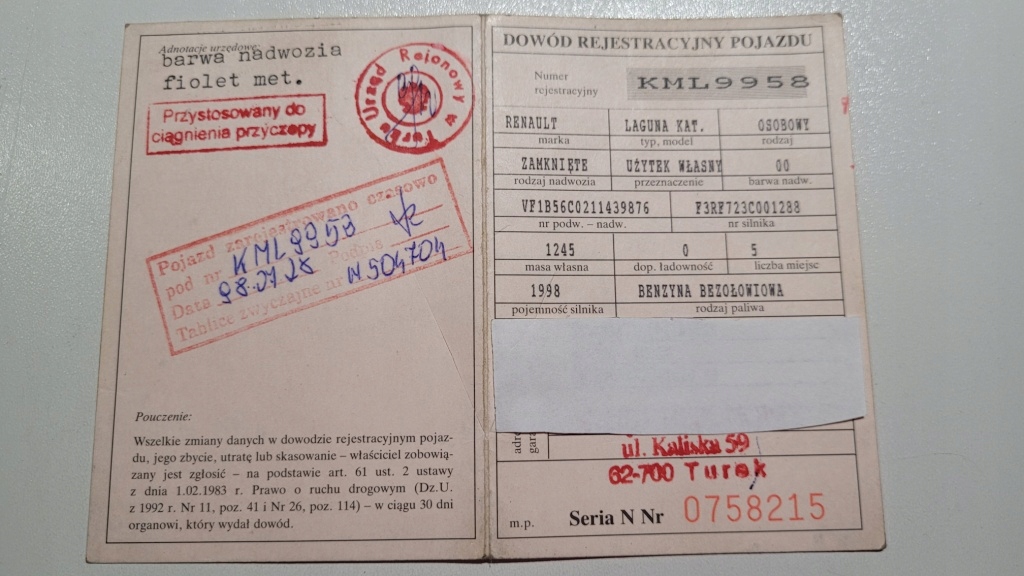 Adnotacje urzędowe:
barwa nadwozia
fiolet met.
Urząd Rejonowy w Turku
Przystosowany do
ciągnienia przyczepy
Pojazd zarejestrowano czasowo
pod nr KML 9958
Data 98.07.28 Podpis
Tablice zwyczajne nr M504704
Pouczenie:
Wszelkie zmiany danych w dowodzie rejestracyjnym pojaz-
du, jego zbycie, utratę lub skasowanie – właściciel zobowią-
zany jest zgłosić – na podstawie art. 61 ust. 2 ustawy
z dnia 1.02.1983 r. Prawo o ruchu drogowym (Dz.U.
z 1992 r. Nr 11, poz. 41 i Nr 26, poz. 114) – w ciągu 30 dni
organowi, który wydał dowód.
DOWÓD REJESTRACYJNY POJAZDU
Numer
rejestracyjny
KML9958
RENAULT LAGUNA KAT. OSOBOWY
marka typ, model rodzaj
ZAMKNIĘTE UŻYTEK WŁASNY 00
rodzaj nadwozia przeznaczenie barwa nadw.
VF1B56C0211439876 F3RF723C001288
nr podw. – nadw. nr silnika
1245 0 5
masa własna dop. ładowność liczba miejsc
1998 BENZYNA BEZOŁOWIOWA
pojemność silnika rodzaj paliwa
ul. Kaliska 59
62-700 Turek
m.p. Seria N Nr 0758215